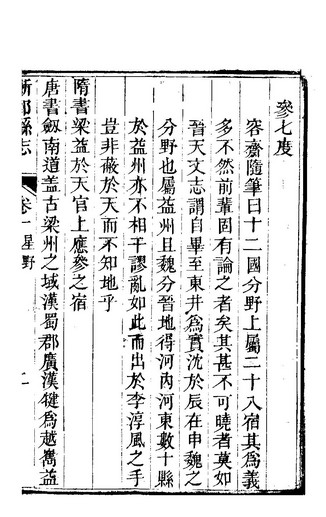 參七度
容齋隨筆曰十二國分野上屬二十八宿其為義
多不然前輩固有論之者矣其甚不可曉者莫如
晉天文志謂自畢至東井為實沈於辰在申魏之
分野也屬益州且魏分晉地得河內河東數十縣
於益州亦不相干謬亂如此而出於李淳風之手
豈非蔽於天而不知地乎
隋書梁益於天官上應參之宿
唐書劔南道蓋古梁州之域漢蜀郡廣漢犍為越嶲益
新都縣志
卷一 星野